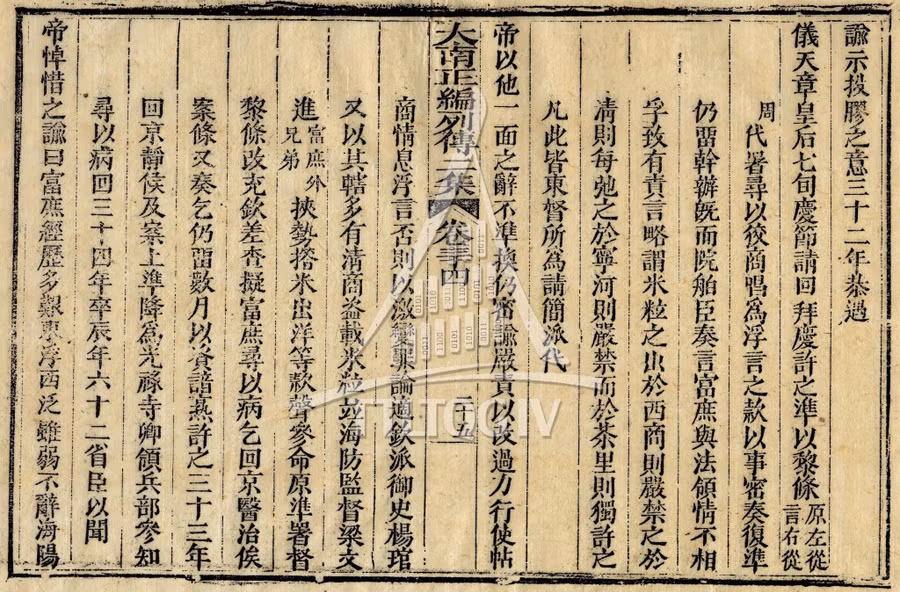 諭示投膠之意三十二年恭遇
儀天章皇后七旬慶節請回拜慶許之準以黎條原左從言右從
周代署尋以狡商唱為浮言之款以事密奏復準
仍畱幹辦既而院舶臣奏言富庶與法領情不相
孚攷有責言略謂米粒之出於西商則嚴禁之於
清則每弛之於寧河則嚴禁而於茶里則獨許之
凡此皆東督所為請簡派代
帝以他一面之辭不準換仍密諭嚴責以改過力行使帖
大南正編列傳二集 卷三十四 二十五
商情息浮言否則以激變罪論適欽派御史楊琯
又以其轄多有清商盜載米粒並海防監督梁文
進富庶外兄弟挾勢搭米出洋等款聲參命原準署督
黎條改充欽差查擬富庶尋以病乞回京醫治俟
案條又奏乞仍畱數月以資諳熟許之三十三年
回京靜俟及案上準降為光祿寺卿領兵部參知
尋以病回三十四年卒辰年六十二省臣以聞
帝悼惜之諭曰富庶經歷多艱東浮西泛雖弱不辭海陽
TTLTQG IV